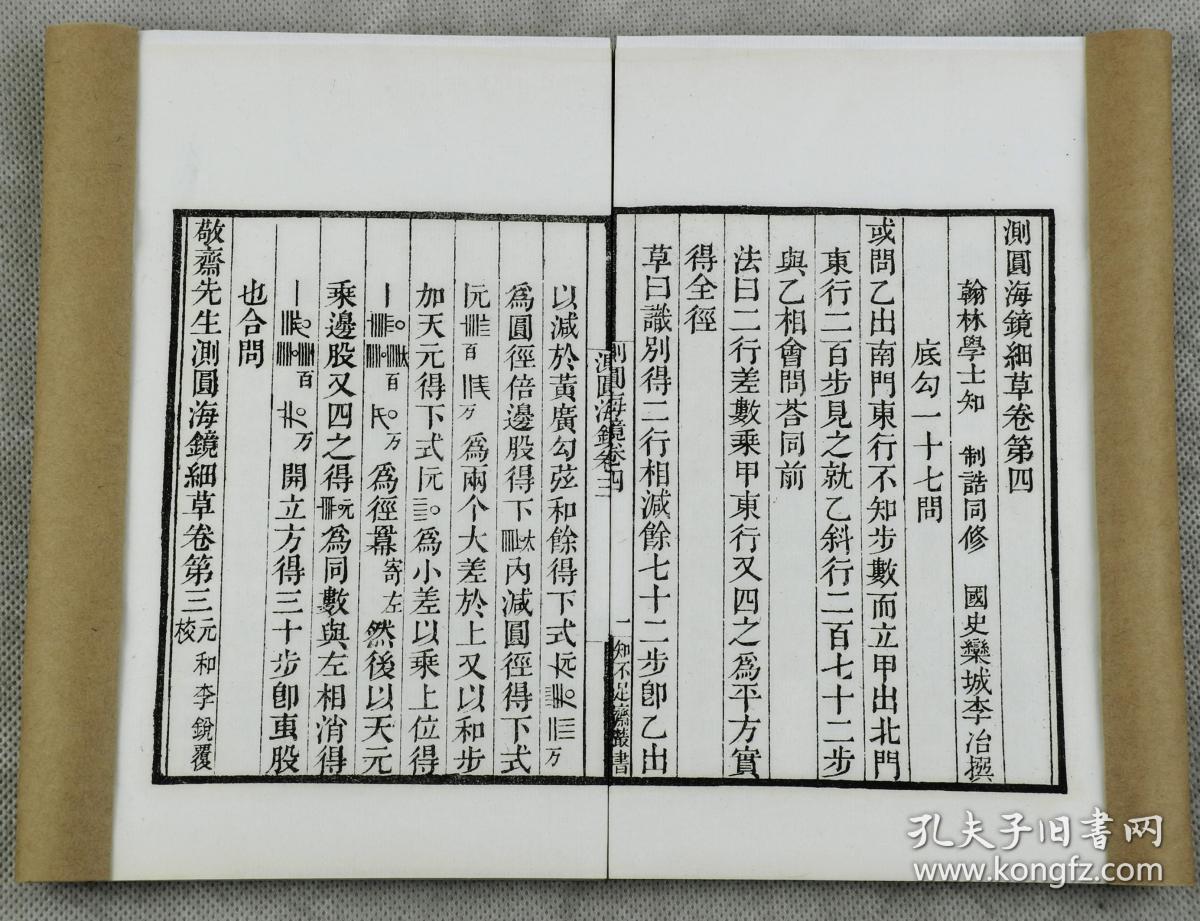 測圓海鏡細草卷第四
翰林學士知 制誥同修 國史欒城李冶撰
底勾一十七問
或問乙出南門東行不知步數而立甲出北門
東行二百步見之就乙斜行二百七十二步
與乙相會問荅同前
法曰二行差數乘甲東行又四之為平方實
得全徑
草曰識別得二行相減餘七十二步卽乙出
測圓海鏡卷四
一
知不足齋叢書
測圓海鏡卷三
以減於黃廣勾弦和餘得下式
為圓徑倍邊股得下 內減圓徑得下式
元 百 万 為兩个大差於上又以和步
加天元得下式元 為小差以乘上位得
百 万 為徑冪寄左然後以天元
乘邊股又四之得 元為同數與左相消得
百 万 開立方得三十步卽叀股
也合問
敬齋先生測圓海鏡細草卷第三 元和李銳覆校
孔夫子旧书网
www.kongfz.com